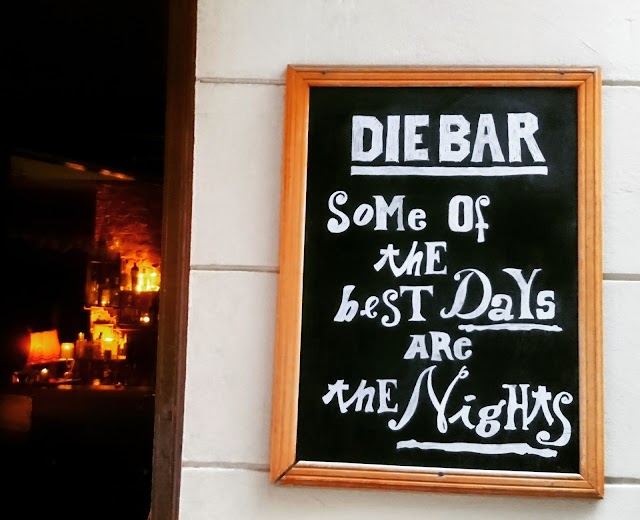 DIE BAR
SoMe Of
the
best DaYs
ARe
the NigHts